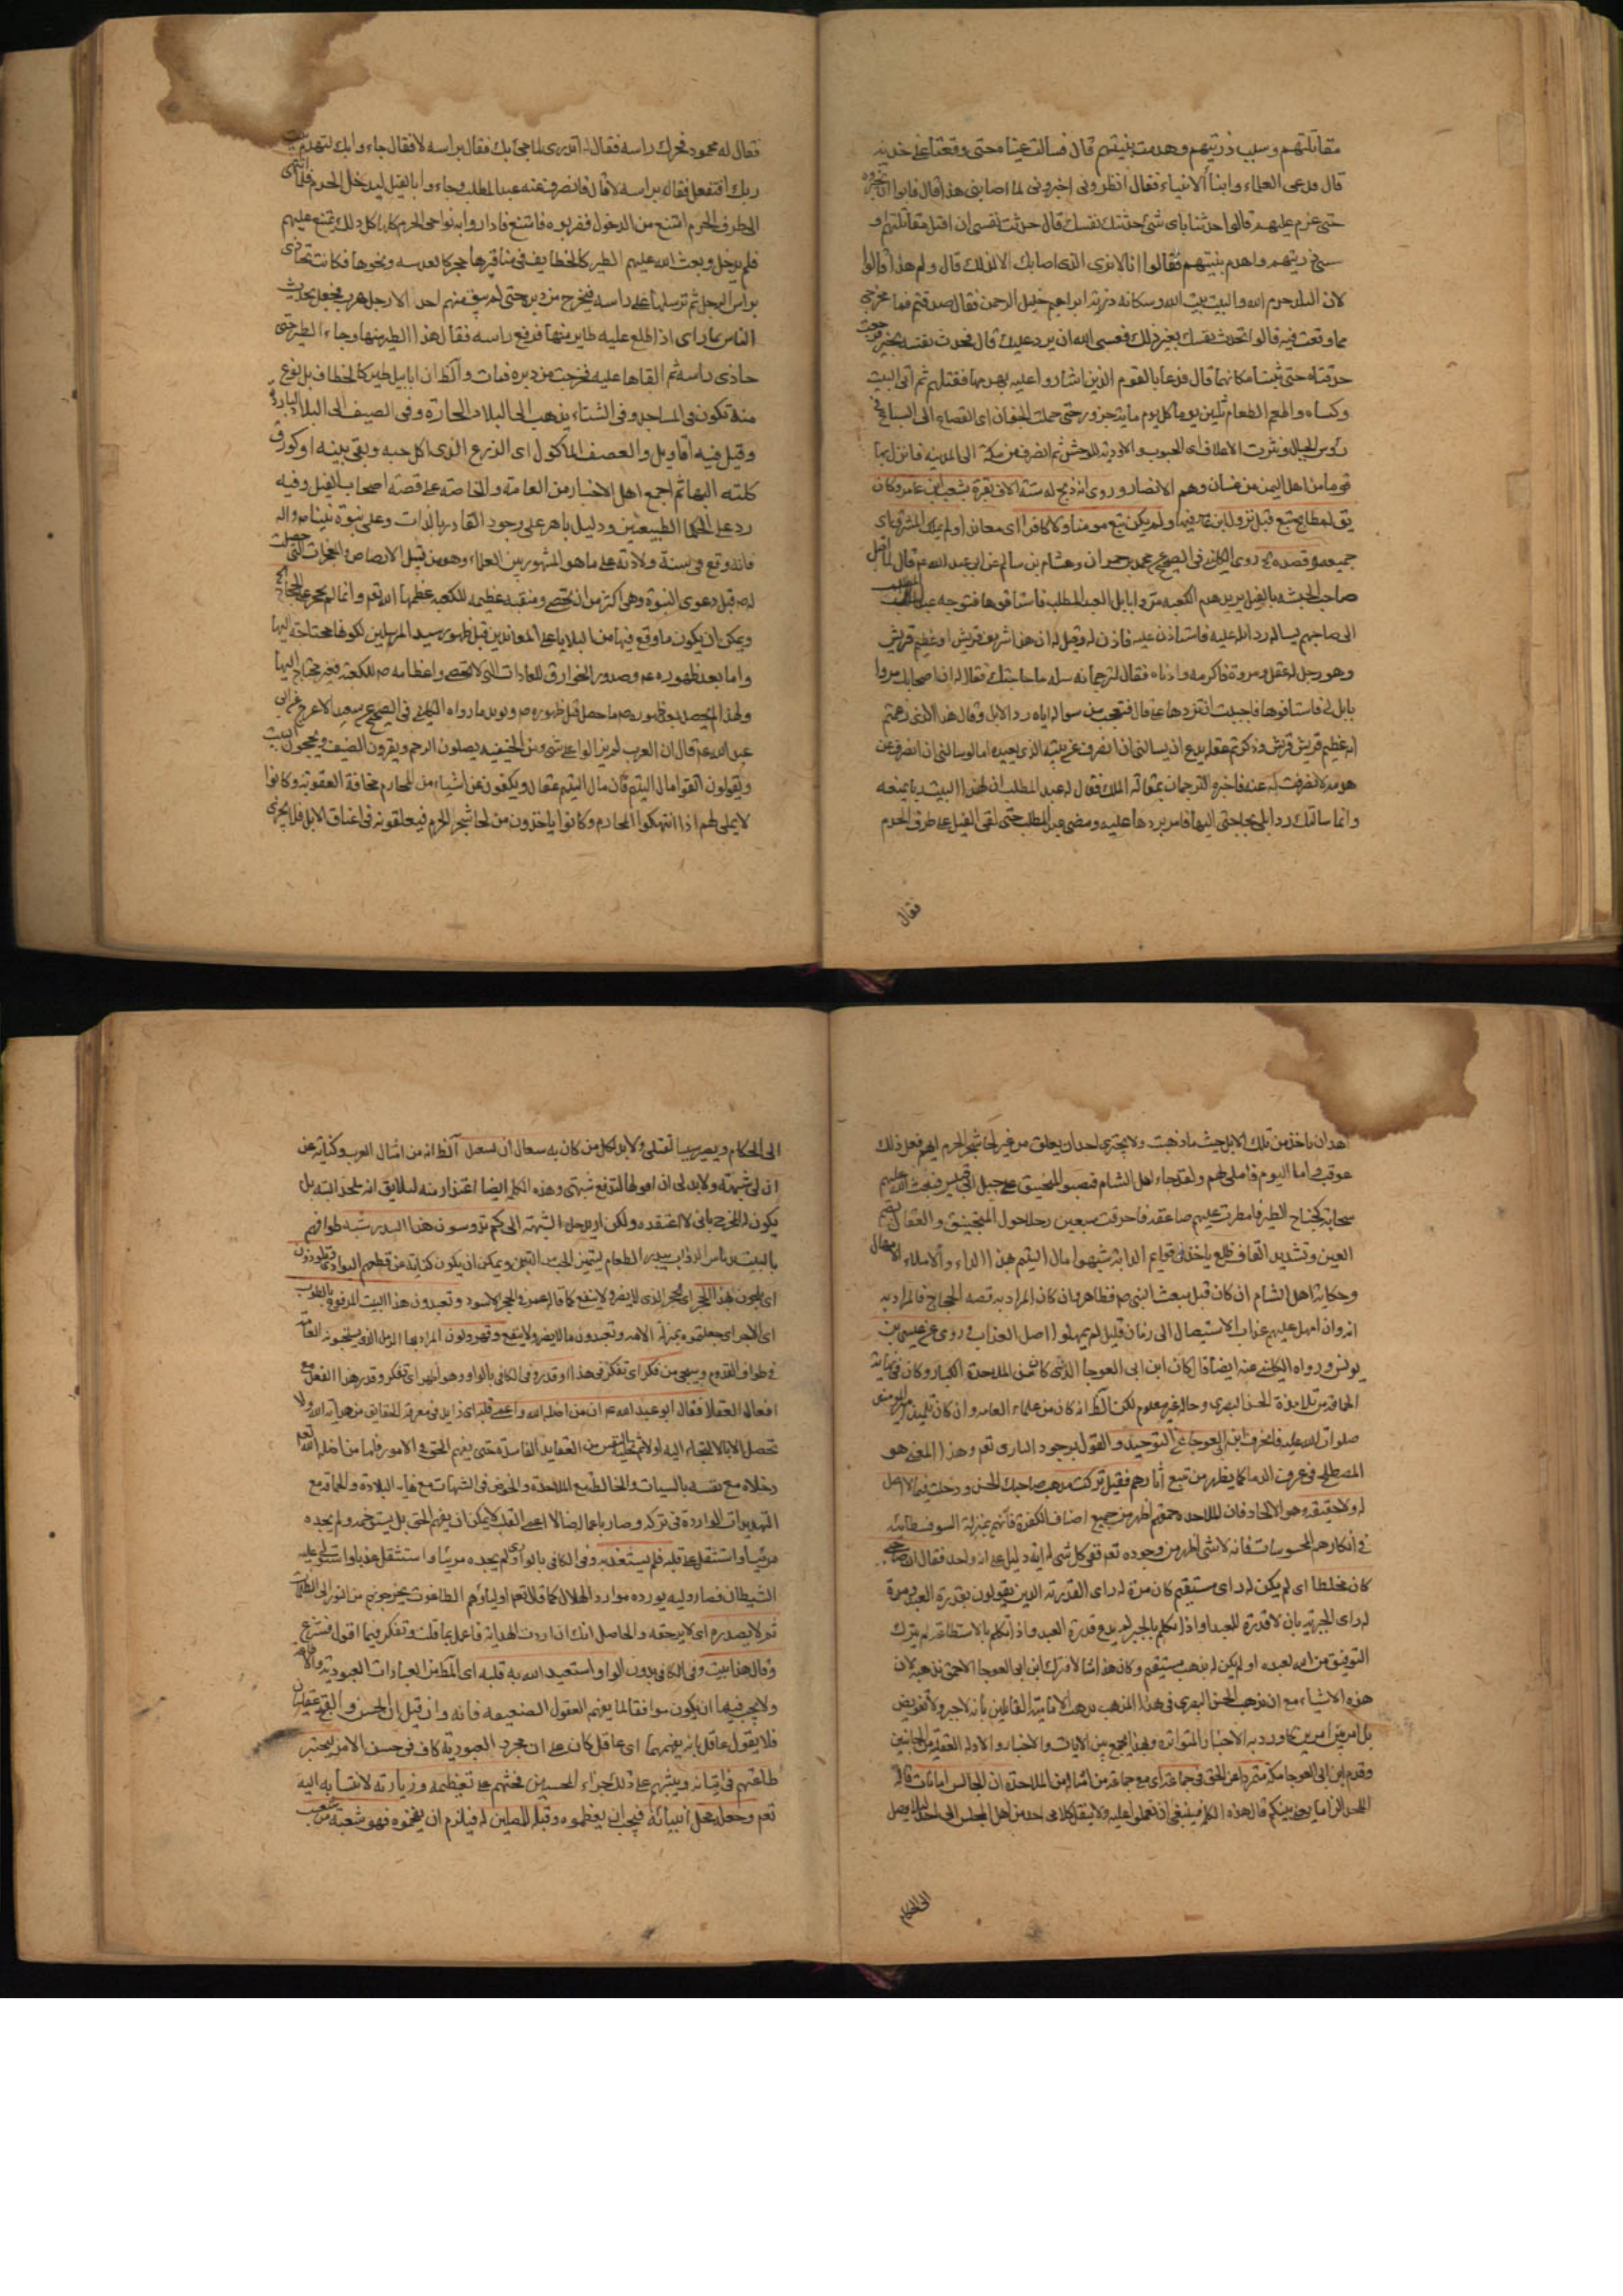 مقاتلتهم وسبب ذريتهم وهدمت بنيتهم قال فسالت عيناه حتى وقعتا على خديه
قال فدعى العلماء وابناء الانبياء فقال انظروني اخبروني لما اصابني هذا قال فابوا ان يخبروه
حتى عزم عليهم قالوا حدثنا باى شئ حدثتك نفسك قال حدثت نفسى ان اقتل مقاتلتهم و
سبى ذريتهم واهدم بنيتهم فقالوا انا لا نرى الذى اصابك الا لذلك قال ولم هذا قالوا
لان البلد حرم الله والبيت بيت الله وسكانه ذرية ابراهيم خليل الرحمن فقال صدقتم فما مخرجى
مما وقعت فيه قالوا تحدث نفسك بغير ذلك فعسى الله ان يرد عليك قال فحدث نفسه بخير فرجعت
حدقتاه حتى ثبتتا مكانهما قال فدعا بالقوم الذين اشاروا عليه بهدمها فقتلهم ثم اتى البيت
وكساه واطعم الطعام ثلثين يوما كل يوم ماية جزور حتى حملت الجفان اى القصاع الى السباع فى
رؤس الجبال ونثرت الاعلاف اى الحبوب والاودية للوحش ثم انصرف من مكة الى المدينة فانزل بها
قوما من اهل اليمن من غسان وهم الانصار وروى انه ذبح له ستة الاف بقرة بشعب ابن عامر وكان
يق لها مطابخ تبع قبل نزول ابن عامر فيها ولم يكن تبع مومنا ولا كافرا اى معاندا ولم يملك المشرق اى
جميعه وقصده روى الكلينى فى الصحيح عن محمد بن حمران وهشام بن سالم عن ابى عبد الله ع قال لما اقبل
صاحب الحبشة بالفيل يريد هدم الكعبة مروا بابل لعبد المطلب فاستاقوها فتوجه عبد المطلب
الى صاحبهم يساله رد ابله عليه فاستاذن عليه فاذن له وقيل له ان هذا شريف قريش او عظيم قريش
وهو رجل له عقل ومروة فاكرمه وادناه فقال لترجمانه سله ما حاجتك فقال له ان اصحابك مروا
بابل لى فاستاقوها فاحببت ان تردها على قال فتعجب من سواله اياه رد الابل وقال هذا الذى زعمتم
انه عظيم قريش وذكرتم عقله يدع ان يسالنى ان انصرف عن بيته الذى يعبده اما لو سالنى ان انصرف عن
هدمه لانصرفت له عنه فاخبره الترجمان بمقالة الملك فقال له عبد المطلب ان لهذا البيت ربا يمنعه
وانما سالتك رد ابلى لحاجتى اليها فامر بردها عليه ومضى عبد المطلب حتى لقى الفيل على طرف الحرم
فقال
فقال له محمود فحرك راسه فقال له اتدرى لما جئ بك فقال براسه لا فقال جاءوا بك لتهدم بيت
ربك افتفعل فقال براسه لا قال فانصرف عنه عبد المطلب وجاءوا بالفيل ليدخل الحرم فلما انتهى
الى طرف الحرم امتنع من الدخول فضربوه فامتنع فاداروا به نواحى الحرم كلها كل ذلك يمتنع عليهم
فلم يدخل وبعث الله عليهم الطير كالخطاطيف فى مناقيرها حجر كالعدسة ونحوها فكانت تحاذى
براس الرجل ثم ترسلها على راسه فيخرج من دبره حتى لم يبق منهم احد الا رجل هرب فجعل يحدث
الناس بما راى اذ اطلع عليه طاير منها فرفع راسه فقال هذا الطير منها وجاء الطير حتى
حاذى راسه ثم القاها عليه فخرجت من دبره فمات والظ ان ابابيل طير كالخطاف بل نوع
منه تكون فى المساجد وفى الشتاء يذهب الى البلاد الحارة وفى الصيف الى البلاد الباردة
وقيل فيه اقاويل والعصف الماكول اى الزرع الذى اكل حبه وبقى تبنه او كورق
اكلته البهائم اجمع اهل الاخبار من العامة والخاصة على قصة اصحاب الفيل وفيه
رد على الحكما الطبيعيين ودليل باهر على وجود القادر بالذات وعلى نبوة نبينا ص واله
فانه وقع فى سنة ولادته على ما هو المشهور بين العلماء وهو من قبيل الارهاص والمعجزات التى حصلت
له ص قبل دعوى النبوة وهى اكثر من ان يحصى ومنقبة عظيمة للكعبة عظمها الله تعم وانما لم يجر على الحجاج
ويمكن ان يكون ما وقع فيها من البلايا على المعاندين قبل ظهور سيد المرسلين لكونها محتاجة اليها
واما بعد ظهوره ع وصدور الخوارق للعادات التى لا تحصى واعظامه ص للكعبة فغير محتاج اليها
ولهذا لم يحصل بعد ظهوره ص ما حصل قبل ظهوره ص ويويد ما رواه الكلينى فى الصحيح عن سعيد الاعرج عن ابى
عبد الله ع قال ان العرب لم يزالوا على شئ من الحنيفية يصلون الرحم ويقرون الضيف ويحجون البيت
ويقولون اتقوا مال اليتيم فان مال اليتيم عقال ويكفون عن اشياء من المحارم مخافة العقوبة وكانوا
لا يملى لهم اذا انتهكوا المحارم وكانوا ياخذون من لحا شجر الحرم فيعلقونه فى اعناق الابل فلا يجترى
احد ان ياخذ من تلك الابل حيث ما ذهبت ولا يجترى احد ان يعلق من غير لحا شجر الحرم ايهم فعل ذلك
عوقب واما اليوم فاملى لهم ولقد جاء اهل الشام فنصبوا المنجنيق على جبل ابى قبيس فبعث الله عليهم
سحابة كجناح الطير فامطرت عليهم صاعقة فاحرقت سبعين رجلا حول المنجنيق والعقال بضم
العين وتشديد القاف ظلع ياخذ فى قوايم الدابة شبهوا مال اليتيم بهذا الداء والاملاء الامهال
وحكاية اهل الشام ان كان قبل مبعث النبى ص فظاهر وان كان المراد به قصه الحجاج فالمراد به
انه وان امهل عليهم عذاب الاستيصال الى زمان قليل لم يمهلوا اصل العذاب فى روى عن عيسى بن
يونس ورواه الكلينى عنه ايضا قال كان ابن ابى العوجا الذى كان من الملاحدة الكبار وكان فى غاية
الحماقة من تلامذة الحسن البصرى وحاله غير معلوم لكن الظ انه كان من علماء العامه وان كان تلميذ امير المومنين
صلوات الله عليه فانحرف ابن ابى العوجا عن التوحيد والقول بوجود البارى تعم وهذا المعنى هو
المصطلح فى عرف القدما كما يظهر من تتبع اثارهم فقيل تركت مذهب صاحبك الحسن ودخلت فيما لا اصل
له ولا حقيقة وهو الالحاد فان للملاحده حمقهم اظهر من جميع اصناف الكفرة فانهم بمنزلة السوفسطائيه
فى انكارهم المحسوسات فانه لا شئ اظهر من وجوده تعم ففى كل شئ له اية دليل على انه واحد فقال ان صاحبى
كان مخلطا اى لم يكن له راى مستقيم كان مرة له راى القدرية الذين يقولون بقدرة العبد ومرة
له راى الجبرية بان لا قدرة للعبد او اذا تكلم بالجبر لم يدع قدرة العبد واذا تكلم بالاستطاعة لم يترك
التوفيق من الله لعبده او لم يكن له مذهب مستقيم وكان هذا منشا لا لترك ابن ابى العوجا الاحمق مذهبه لان
هذه الاشياء مع ان مذهب الحسن البصرى فى هذا المذهب مذهب الامامية القائلين بانه لا جبر ولا تفويض
بل امر بين امرين كما ورد به الاخبار المتواترة وبهذا يجمع بين الايات والاخبار والادلة العقلية من الجانبين
وقدم ابن ابى العوجا مكة متمردا عن الحق فى جماعة اى مع جماعة من امثاله من الملاحدة ان المجالس امانات قال
الملحد الزاما يعنى بينكم قال هذه الكلم فينبغى ان تعملوا عليه ولا ينقل كلامى احد من اهل المجلس الى احد لئلا يصل
الى الحكام
الى الحكام ويصير سببا لقتلى ولا بد لكل من كان به سعال ان يسعل الظ انه من امثال العرب وكناية عن
ان لى شبهة ولا بد لى ان اقولها لترفع شبهتى وهذه الكلم ايضا اعتذار منه لئلا يق انه ملحد البته بل
يكون له المخرج بانى لا اعتقده ولكن اريد حل الشبهة الى كم تدوسون هذا البيدر شبه طوافهم
بالبيت بدياس الدواب بيدر الطعام ليتميز الحب من التبن ويمكن ان يكون كناية عن قطعهم البوادى وتلوذون
اى تلجون بهذا الحجر اى الحجر الذى لا يضر ولا ينفع كما قاله عمر فى الحجر الاسود وتعبدون هذا البيت المرفوع بالطوب
اى الاجر اى جعلتموه بمنزلة الاله وتعبدون ما لا يضر ولا ينفع وتهرولون المراد بها الرمل الذى يستحبونه العامة
فى طواف القدوم وسعى من فكر اى تفكر فى هذا او قدره فى الكافى بالواو وهو اظهر اى تفكر وقدر هذا الفعل مع
افعال العقلا فقال ابو عبد الله ع ان من اضله الله واعمى قلبه اى زايل فى معرفة الحقايق من هداية الله ولا
تحصل الا بالالتجاء اليه اولا ثم تخلية النفس من العقايد الفاسدة حتى يفهم الحق فى الامور فاما من اضله الله تعم
وخلاه مع نفسه بالسيئات والمخالطة مع الملاحدة والخوض فى الشبهات مع غاية البلادة والحماقة مع
التهديدات الواردة فى تركه وصار باعماله ضالا اعمى القلب لا يمكن ان يفهم الحق بل يستوخمه ولم يجده
مريئا واستثقل على قلبه فلم يستعذبه وفى الكافى بالواو اى لم يجده مريئا واستثقل عذبا واستولى عليه
الشيطان فصار وليه يورده موارد الهلاك كما قال تعم اولياؤهم الطاغوت يخرجونهم من النور الى الظلمات
ثم لا يصدره اى لا يرجعه والحاصل انك ان اردت الهداية فاعمل بما قلت وتفكر فيما اقول فشرع
وقال هذا بيت وفى الكافى بدون الواو استعبد الله به قلبه اى الظ من العبادات العبودية والامر
ولا يجب فيها ان يكون موافقا لما يفهم العقول الضعيفه فانه وان قيل ان الحسن والقبح عقليان
فلا يقول عاقل بانه يفهمهما اى عاقل كان على ان مجرد العبودية كاف فى حسن الامر ليختبر
طاعتهم فى اتيانه ويثيبهم على ذلك جزاء المحسنين فحثهم على تعظيمه وزيارته لانتسابه اليه
تعم وجعله محل انبيائه فيجب ان يعظموه وقبلة للمصلين له فيلزم ان يفخموه فهو شعبة من